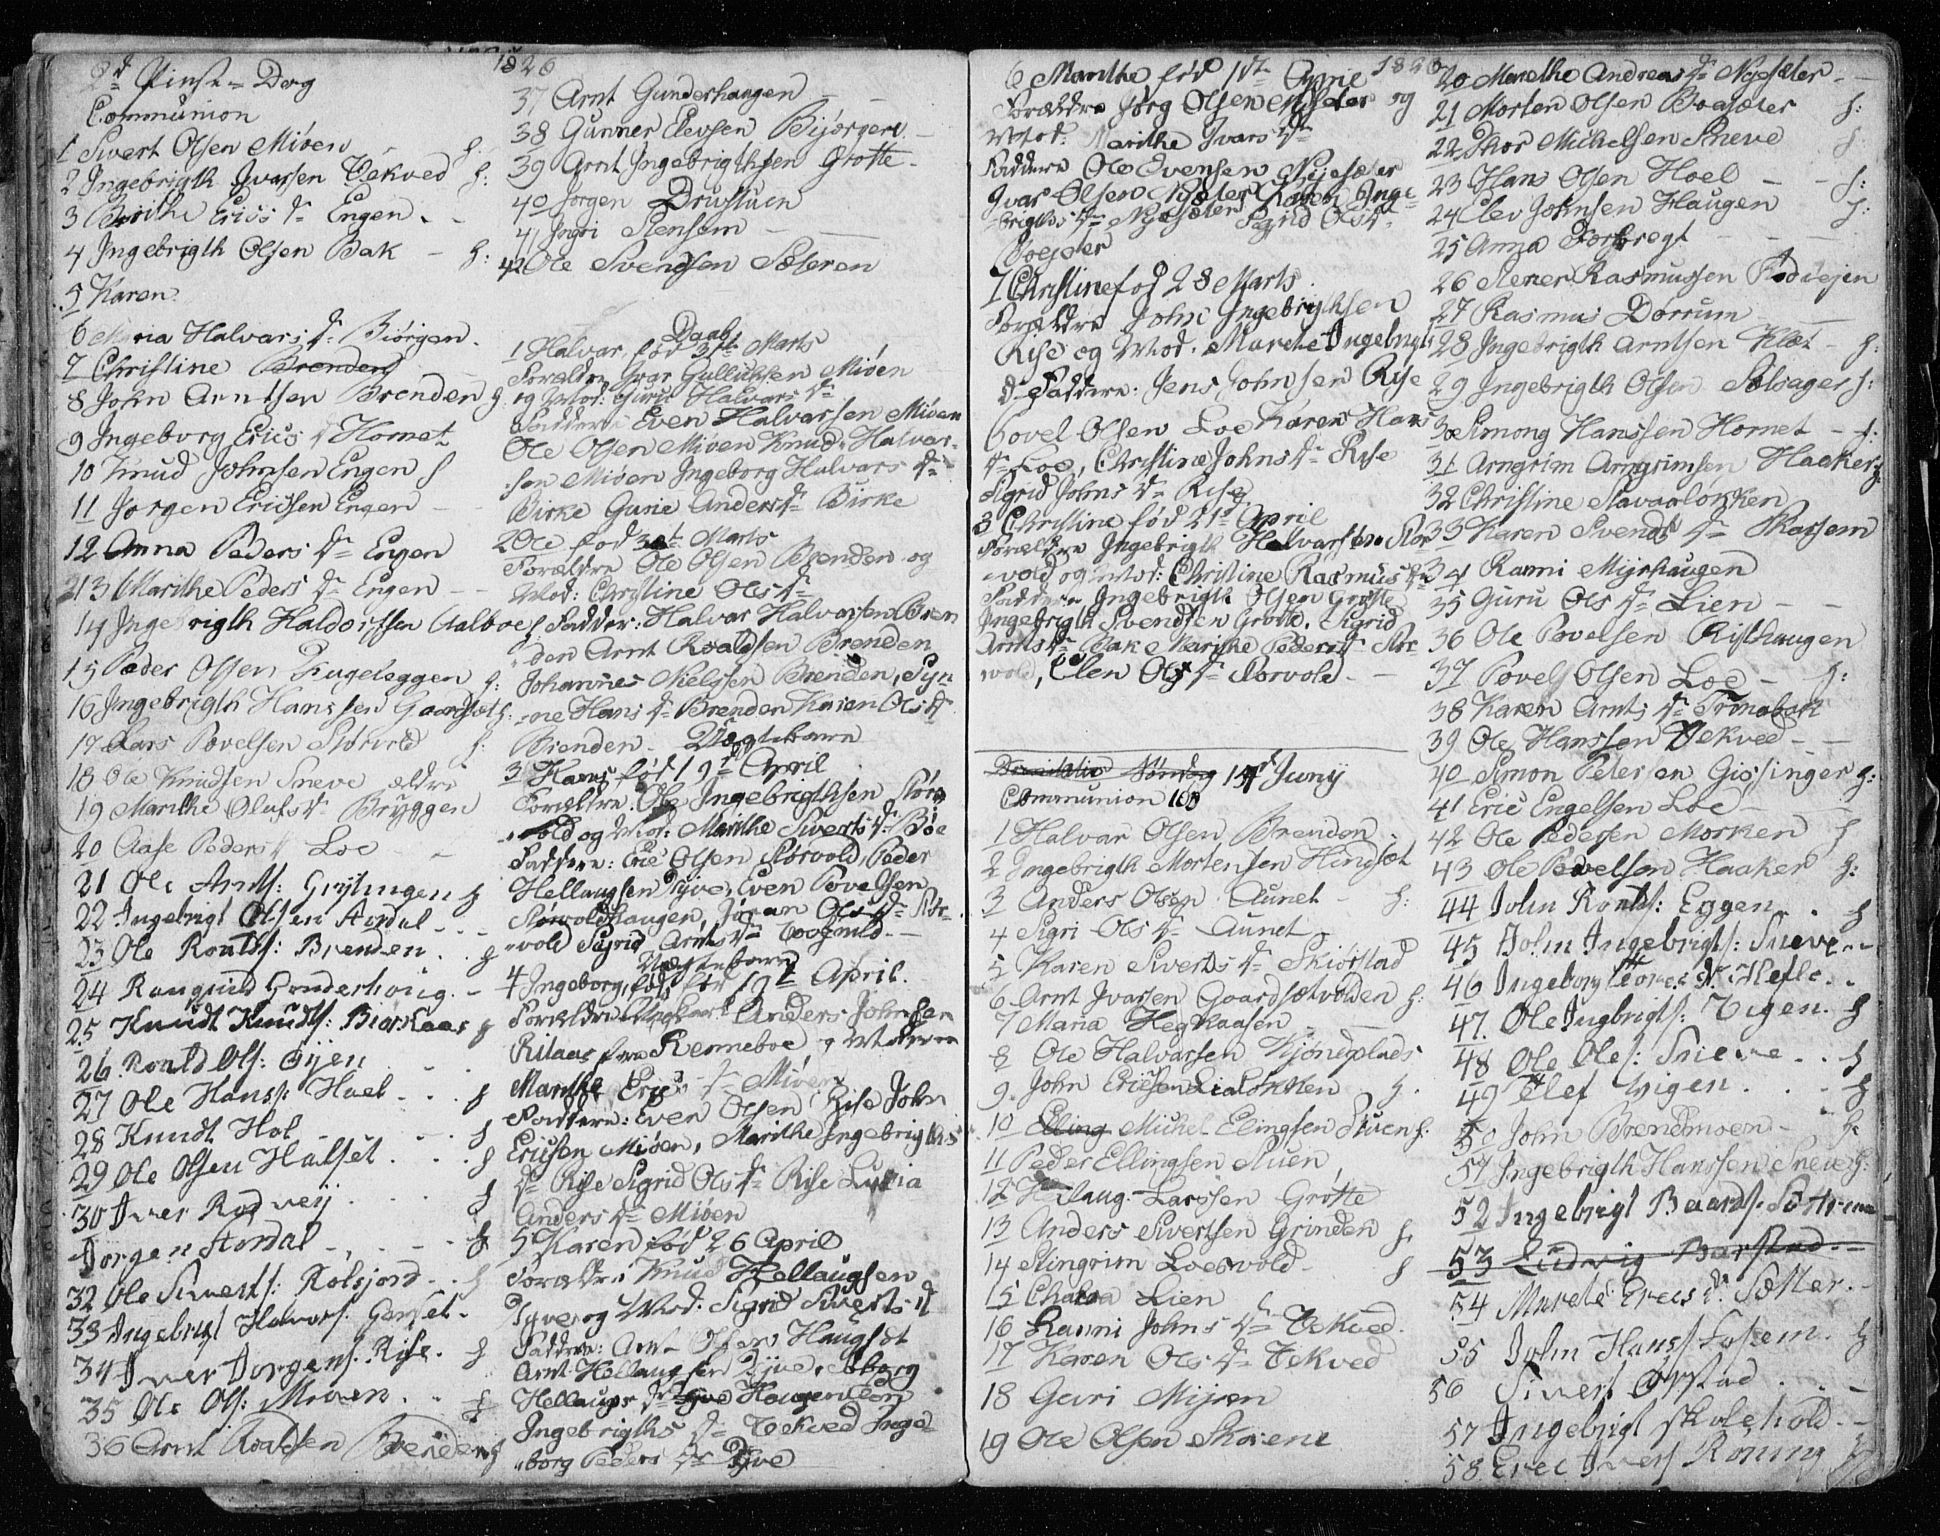 2d Pinse- Dag
Communion
1 Sivert Olsen Miøen - h:
2 Ingebrigth Ivarsen Vekved h:
3 Berithe Erics Dr Engen. -
4 Ingebrigth Olsen Bak - h:
5 Karen
6 Maria Halvars Dr Biørgen.
7 Christine Brenden
8 John Arntsen Brenden h
9 Ingeborg Erics Dr Hornet
10 Knud Johnsen Engen h
11 Jørgen Ericsen Engen - -
12 Anna Peders Dr Engen
13 Marithe Peders Dr Engen - -
14 Ingebrigth Haldorssen Aalboe h
15 Peder Olsen Fugeleggen h:
16 Ingebrigth Hanssen Gaardsæt h:
17 Lars Povelsen Størvold h:
18 Ole Knudsen Sneve ældre
19 Marithe Olufs Dr Bryggen
20 Aase Peders Dr Loe - -
21 Ole Arnts: Gryting h
22 Ingebrigt Olsen Aardal - - -
23 Ole Roalds: Brenden . . h
24 Ranguld Gonderhoug. -
25 Knudt Knudts: Biørkaas h
26 Roald Ols: Øyen
27 Ole Hanss: Hoel . . . h
28 Knudt Hol - - . h
29 Ole Olsen Halset . . . h
30 Iver Rodveij . . . h
Jørgen Aardal - . - - h
32 Ole Siverts: Rølsjord - . h
33 Ingebrigt Halvors: Garset -
34 Iver Jorgens: Rise. h
35 Ole Ols: Mioen . . h
36 Arnt Roaldsen Brenden h
1826
37 Arnt Gunderhaugen - -
38 Gunner Elevsen Bjiørgen -
39 Arnt Ingebrigthsen Grotte -
40 Jørgen Drustuen
41 Ingri Stensem - -
42 Ole Svendsen Sæteren
Daab
1 Halvar, fød 31te Marts
Forældre Ivar Gullichsen Miøen
og Mod: Gurie Halvars Dr
Faddere: Even Halvarsen Miøen
Ole Olsen Miøen Knud Halvar-
sen Miøen Ingeborg Halvars Dr
Birke Gurie Anders Dr Birke
2 Ole fød 30te Marts
Forældre Ole Olsen Brenden og
Mod: Christine Ols Dr
Fadder: Halvar Halvarsen Bren
den Arnt Roaldsen Brenden
Johannes Nielssen Brenden, Syn
ne Hans Dr Brenden Karen Ols Dr
Brenden - Uægtebarn
3 Hans fød 19d April
Forældre: Ole Ingebrigthsen Størs
vold og Mod: Marithe Siverts Dr Bøe
Faddere: Eric Olsen Størvold, Peder
Hellaugsen Tyve, Even Povelsen
Størvoldhaugen, Jøran Ols Dr Stør-
vold Sigrid Arnts Dr
Uægtebarn
4 Ingeborg, fød 19d April.
Forældre Anders Johnsen
Rilaas fra Renneboe og Moderen
Marithe Erics Dr Miøen
Faddere: Even Olsen Rise John
Ericsen Miøen, Marithe Ingebrigths
Dr Rise Sigrid Ols Dr Rise Lucia
Anders Dr Miøen
5 Karen fød 26 April
Forældre: Knud Hellaugsen
Tyve og Mod: Sigrid Siverts Dr
Faddere: Arnt Olsen Haugset
Arnt Hellaugsen Tyve, Ingborg
Hellaugs Dr Tyve
Ingebrigths Dr Vekved Inge-
borg Peders Dr Tyve
1826
6 Marithe fød 1ste April
Forældre Jørg Olsen Nysæter og
Mod: Marithe Ivars Dr
Faddere Ole Svensen Nysæter
Ivar Olsen Nysæter Karen Inge-
brigths Dr Nysæter Sigrid Ols Dr
7 Christine fød 28 Marts
Forældre John Ingebrigthsen
Rise og Mod. Marete Ingebrigths
Dr Faddere: Jens Johnsen Rise
Povel Olsen Loe Karen Hans
Dr Loe, Christine Johns Dr Rise
Sigrid Johns Dr Rise
8 Christine fød 21d April
Forældre Ingebrigth Halvarsen Stør
vold og Mod: Christine Rasmus Dr
Faddere Ingebrigth Olsen Grotte
Ingebrigth Svendsen Grotte, Sigrid
Arnts Dr Bak Marithe Peders Dr Stør
vold, Elen Ols Dr Størvold - -
Søndag 14d Junij
Communion 100
1 Halvar Olsen Brenden -
2 Ingebrigth Mortensen Hindsæt
3 Anders Olsen Aunet - h:
4 Sigri Ols Dr Aunet -
5 Karen Siverts Dr Skiørstad
6 Arnt Ivarsen Gaardsætvolden h:
7 Maria Hegkaasen - -
8 Ole Halvarsen Kjønegplads
9. John Ericsen Lialøkken . h.
10 Elling Michel Elingsen Stuen h:
11 Peder Ellingsen Stuen
12 Hellaug Larssen Grotte
13 Anders Sivertsen Grinden h.
14 Stingrim Loesvold - h
15 Lien
16 Ranni Johns Dr Vekved.
17 Karen Ols Dr Vekved
18 Guri Mijren
19 Ole Olsen Skorene
20 Marethe Andreas Dr Nysæter - -
21 Morten Olsen Boesæter h:
22 Thor Michelsen Sneve h
23 Hans Olsen Hoel - - h:
24 Elev Johnsen Haugen h:
25 Anna Forbregt - - -
26 Stener Rasmussen Rødvejen
27 Rasmus Dørrum -
28 Ingebrigth Arntsen Klæt - h:
29 Ingebrigth Olsen Solsager h:
30 Simong Hanssen Hornet - h:
31 Arngrim Arngrimsen Haaker h:
32 Christine Stavaaløkken
33 Karen Svends Dr Skarsem
34 Ranni Mijrhaugen
35 Guru Ols Dr Lien - -
36 Ole Povelsen Risthaugen
37 Povel Olsen Loe - h:
38 Karen Arnts Dr Tronebak
39 Ole Hanssen Vekved - -
40 Simon Petersen Gissinger h:
41 Eric Engelsen Loe -
42 Ole Pedersen Morken h
43 Ole Povelsen Haaker h:
44 John Roalds: Eggen . . h
45 John Ingebrigts: Sneve . -
46 Ingeborg Tores Dr Hefle . .
47. Ole Ingbrigts: Vigen. h
48 Ole Ols: Sneve . . h
49 Elef Vigen . . . h
50 John Brendmoen - h:
51 Ingebrigth Hanssen Sneve h:
52 Ingebrigt Baards: Sætteren
53 Ludvig Barstad . -
54 Marete Erecs Dr Sætter. -
55 John Hanss: Fosem. h
56 Sivert Ørstad . . -
57 Ingebrigt Skolehold - -
58 Erec Ivers Røning h